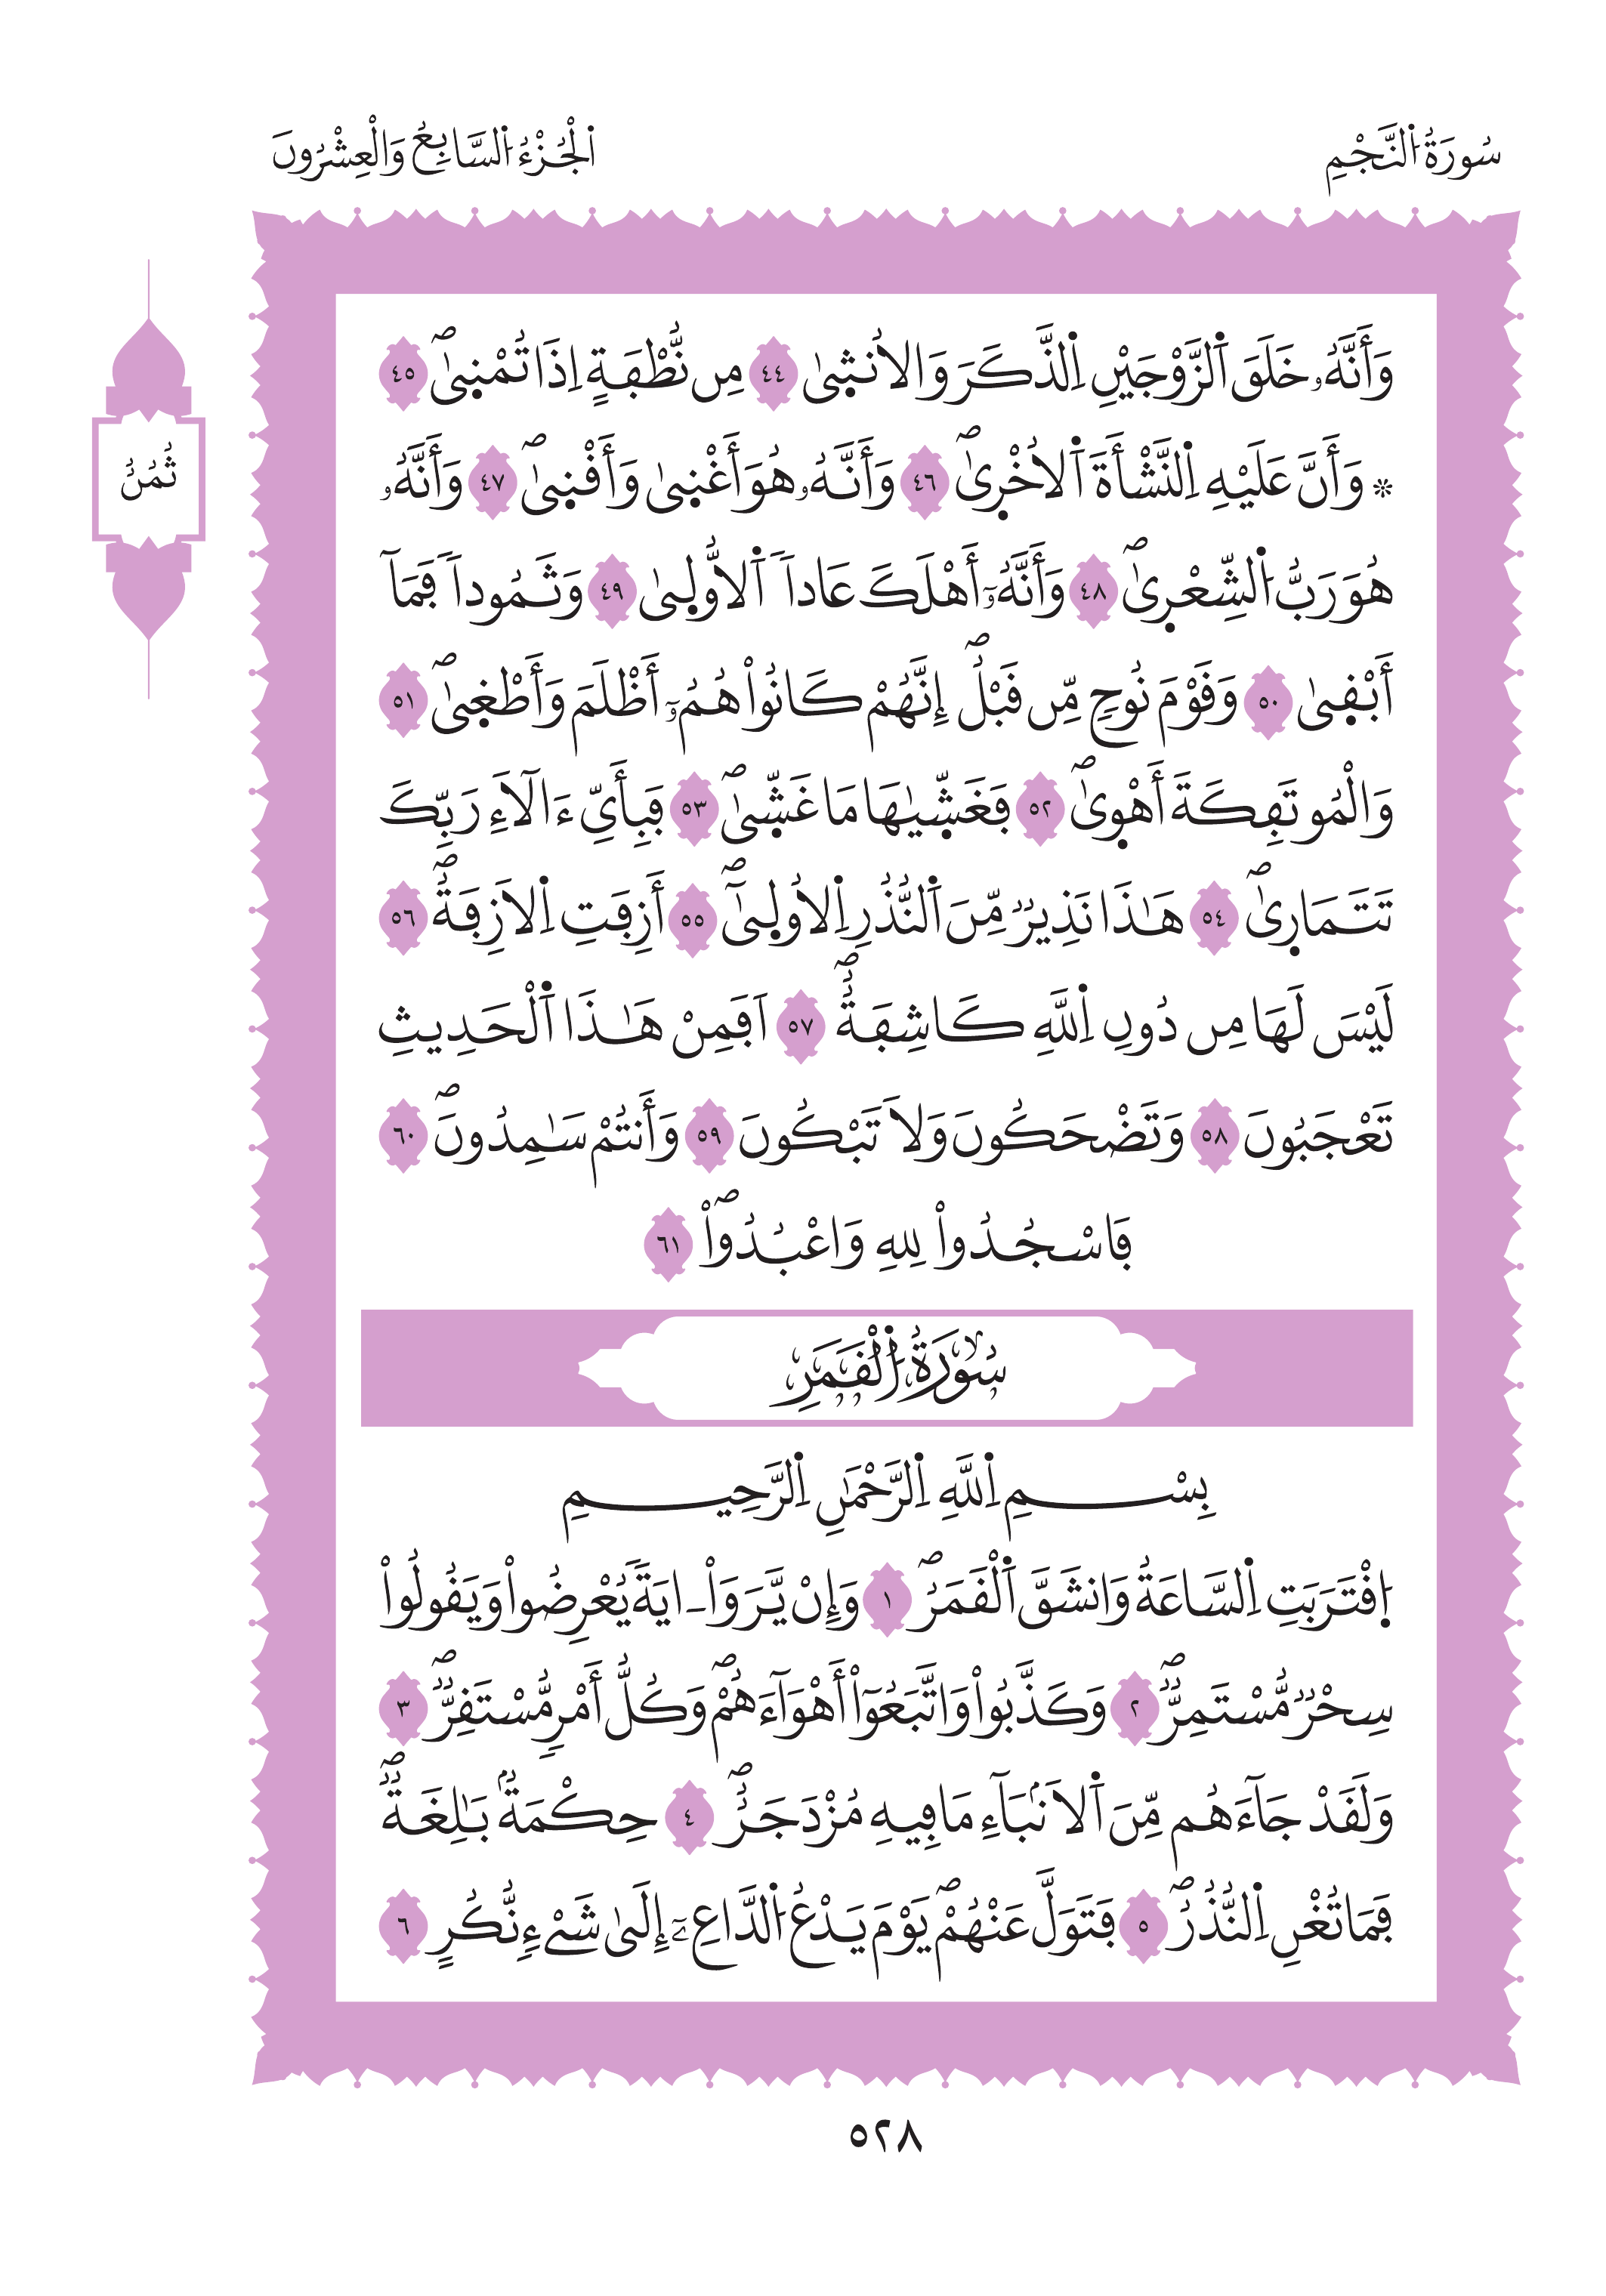 سُورَةُ اُ۬لنَّجْمِ
اَ۬لْجُزْءُ اُ۬لسَّابِعُ وَالْعِشْرُونَ
وَأَنَّهُۥ خَلَقَ اَ۬لزَّوْجَيْنِ اِ۬لذَّكَرَ وَالُانث۪يٰ ٤٤ مِن نُّطْفَةٍ اِذَا تُمْن۪يٰۖ ٤٥
۞ وَأَنَّ عَلَيْهِ اِ۬لنَّشْأَةَ اَ۬لُاخْر۪يٰۖ ٤٦ وَأَنَّهُۥ هُوَ أَغْن۪يٰ وَأَقْن۪يٰۖ ٤٧ وَأَنَّهُۥ
هُوَ رَبُّ اُ۬لشِّعْر۪يٰۖ ٤٨ وَأَنَّهُۥٓ أَهْلَكَ عَاداَ اَ۬لُّاول۪يٰ ٤٩ وَثَمُوداَ فَمَآ
أَبْق۪يٰ ٥٠ وَقَوْمَ نُوحٖ مِّن قَبْلُۖ إِنَّهُمْ كَانُواْ هُمُۥٓ أَظْلَمَ وَأَطْغ۪يٰۖ ٥١
وَالْمُوتَفِكَةَ أَهْو۪يٰۖ ٥٢ فَغَشّ۪يٰهَا مَا غَشّ۪يٰۖ ٥٣ فَبِأَيِّ ءَالَآءِ رَبِّكَ
تَتَمَار۪يٰۖ ٥٤ هَٰذَا نَذِيرٞ مِّنَ اَ۬لنُّذُرِ اِ۬لُاول۪يٰٓۖ ٥٥ أَزِفَتِ اِ۬لَازِفَةُۖ ٥٦
لَيْسَ لَهَا مِن دُونِ اِ۬للَّهِ كَاشِفَةٌۖ ٥٧ اَفَمِنْ هَٰذَا اَ۬لْحَدِيثِ
تَعْجَبُونَ ٥٨ وَتَضْحَكُونَ وَلَا تَبْكُونَ ٥٩ وَأَنتُمْ سَٰمِدُونَۖ ٦٠
فَاسْجُدُواْ لِلهِ وَاعْبُدُواْۖ ٦١
ثُمُنُ
سُورَةُ اُ۬لْقَمَرِ
بِسْمِ اِ۬للَّهِ اِ۬لرَّحْمَٰنِ اِ۬لرَّحِيمِ
اِ۪قْتَرَبَتِ اِ۬لسَّاعَةُ وَانشَقَّ اَ۬لْقَمَرُۖ ١ وَإِنْ يَّرَوَاْ ـ ايَةٗ يُعْرِضُواْ وَيَقُولُواْ
سِحْرٞ مُّسْتَمِرّٞۖ ٢ وَكَذَّبُواْ وَاتَّبَعُوٓاْ أَهْوَآءَهُمْۖ وَكُلُّ أَمْرٖ مُّسْتَقِرّٞۖ ٣
وَلَقَدْ جَآءَهُم مِّنَ اَ۬لَانۢبَآءِ مَا فِيهِ مُزْدَجَرٌۖ ٤ حِكْمَةُۢ بَٰلِغَةٞۖ
فَمَا تُغْنِ اِ۬لنُّذُرُۖ ٥ فَتَوَلَّ عَنْهُمْۖ يَوْمَ يَدْعُ اُ۬لدَّاعِۦٓ إِلَىٰ شَيْءٖ نُّكُرٍ ٦
٥٢٨